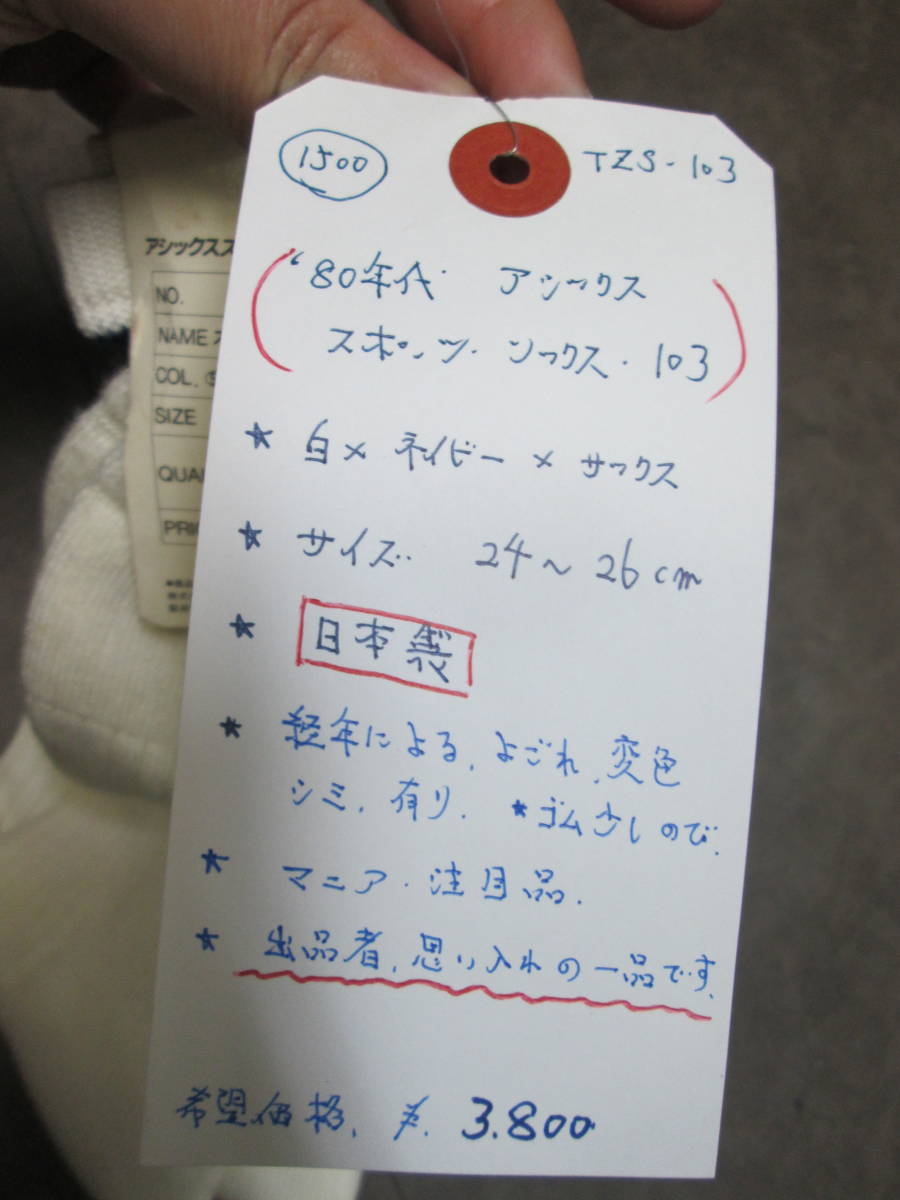 1500
TZS-103
'80年代 アシックス
スポーツ・ソックス・103
★ 白×ネイビー×サックス
★ サイズ 24〜26cm
★ 日本製
★ 経年による、よごれ、変色
シミ、有り. ★ゴム少しのび.
★ マニア・注目品.
★ 出品者、思い入れの一品です.
希望価格、¥. 3.800
アシックスス
NO.
NAME
COL.
SIZE
QUA
PRI